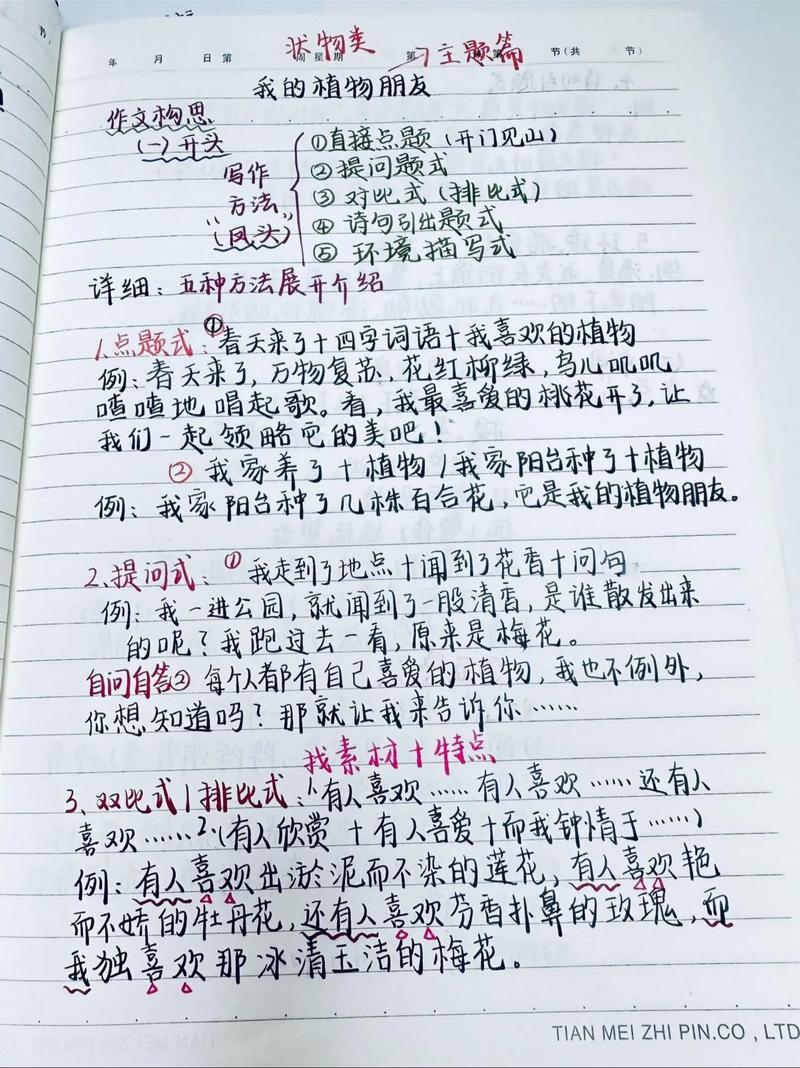 状物类 →主题篇
年 月 日 第 周 星 期 第 节(共 节)
我的植物朋友
作文构思
(一)开头
写作方法
“(凤头)”
①直接点题(开门见山)
②提问题式
③对比式(排比式)
④诗句引出题式
⑤环境描写式
详细：五种方法展开介绍
1.点题式：①春天来了十四字词语十我喜欢的植物
例：春天来了，万物复苏、花红柳绿，鸟儿叽叽
喳喳地唱起歌。看，我最喜爱的桃花开了，让
我们一起领略它的美吧！
②我家养了十植物/我家阳台种了十植物
例：我家阳台种了几株百合花，它是我的植物朋友。
2.提问式：①我走到了地点十闻到了花香十问句
例：我一进公园，就闻到了一股清香，是谁散发出来
的呢？我跑过去一看，原来是梅花。
自问自答②每个人都有自己喜爱的植物，我也不例外，
你想知道吗？那就让我来告诉你……
找素材十特点
3、双比式/排比式：1.有人喜欢……有人喜欢……还有人
喜欢……2.(有人欣赏十有人喜爱十而我钟情于……)
例：有人喜欢出淤泥而不染的莲花，有人喜欢艳
而不娇的牡丹花，还有人喜欢芬香扑鼻的玫瑰，而
我独喜欢那冰清玉洁的梅花。
TIAN MEI ZHI PIN.CO , LTD